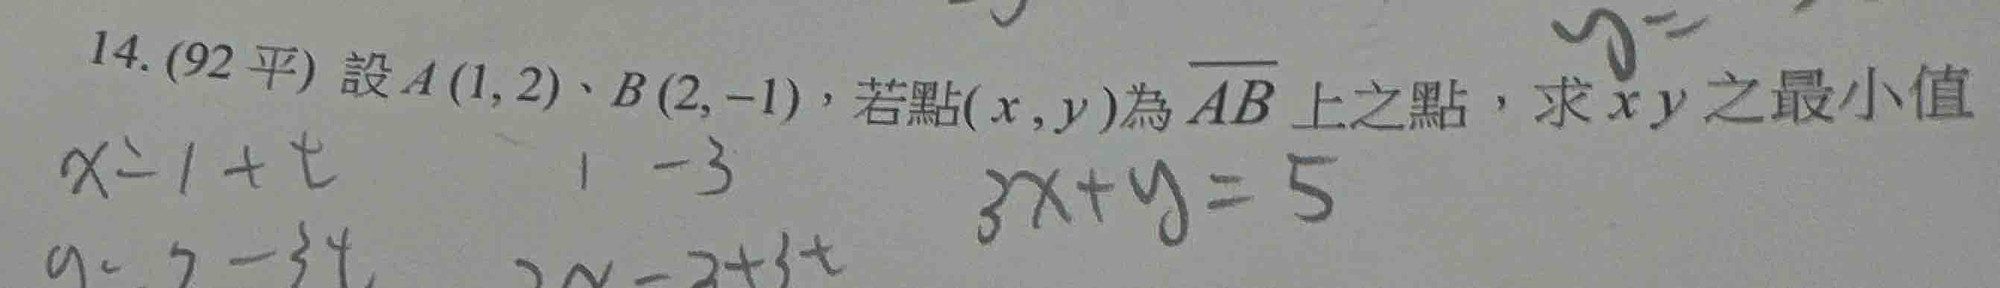 y=
14. (92 平) 設 A (1, 2)、B (2, −1)，若點( x , y )為 \overline{AB} 上之點，求 x y 之最小值
x=1+t 1 -3 3x+y=5
y=2-3t